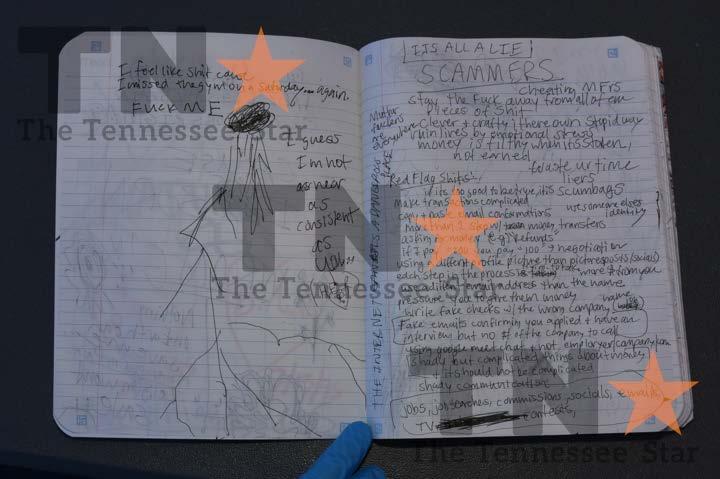 I feel like shit cause
I missed the gym on a saturday... again.
FUCK ME
I guess
I'm not
as near
as
consistent
as
IT'S ALL A LIE
SCAMMERS
cheating MFrs
stay the fuck away from all of em
pieces of shit
clever + crafty in there own stupid way
ruin lives by emotional stress
money is filthy when its stolen,
not earned
waste ur time
liers
Red Flag Shifts:
if its too good to be true, its scumbags
make transactions complicated
use someone elses
identity
copy + paste email confirmations
more than 2 steps w/ money transfers
asking for money e.g. "Refunds"
negotiation
using different profile picture than picresposts (socials)
each step in the process more $ from you
email address than the name
pressure you to give them money
write fake checks w/ the wrong company name
Fake emails confirming you applied + have an
interview but no # of the company to call
using google meet chat + not employer/company.com
shady but complicated things about money
+ it should not be complicated
shady communication
jobs, job searches, commissions, socials, emails,
TV contests,
THE INTERNET IS A DANGEROUS PLACE
Mother
fuckers
are
everywhere
TN
The Tennessee Star
TN
The Tennessee Star
TN
The Tennessee Star